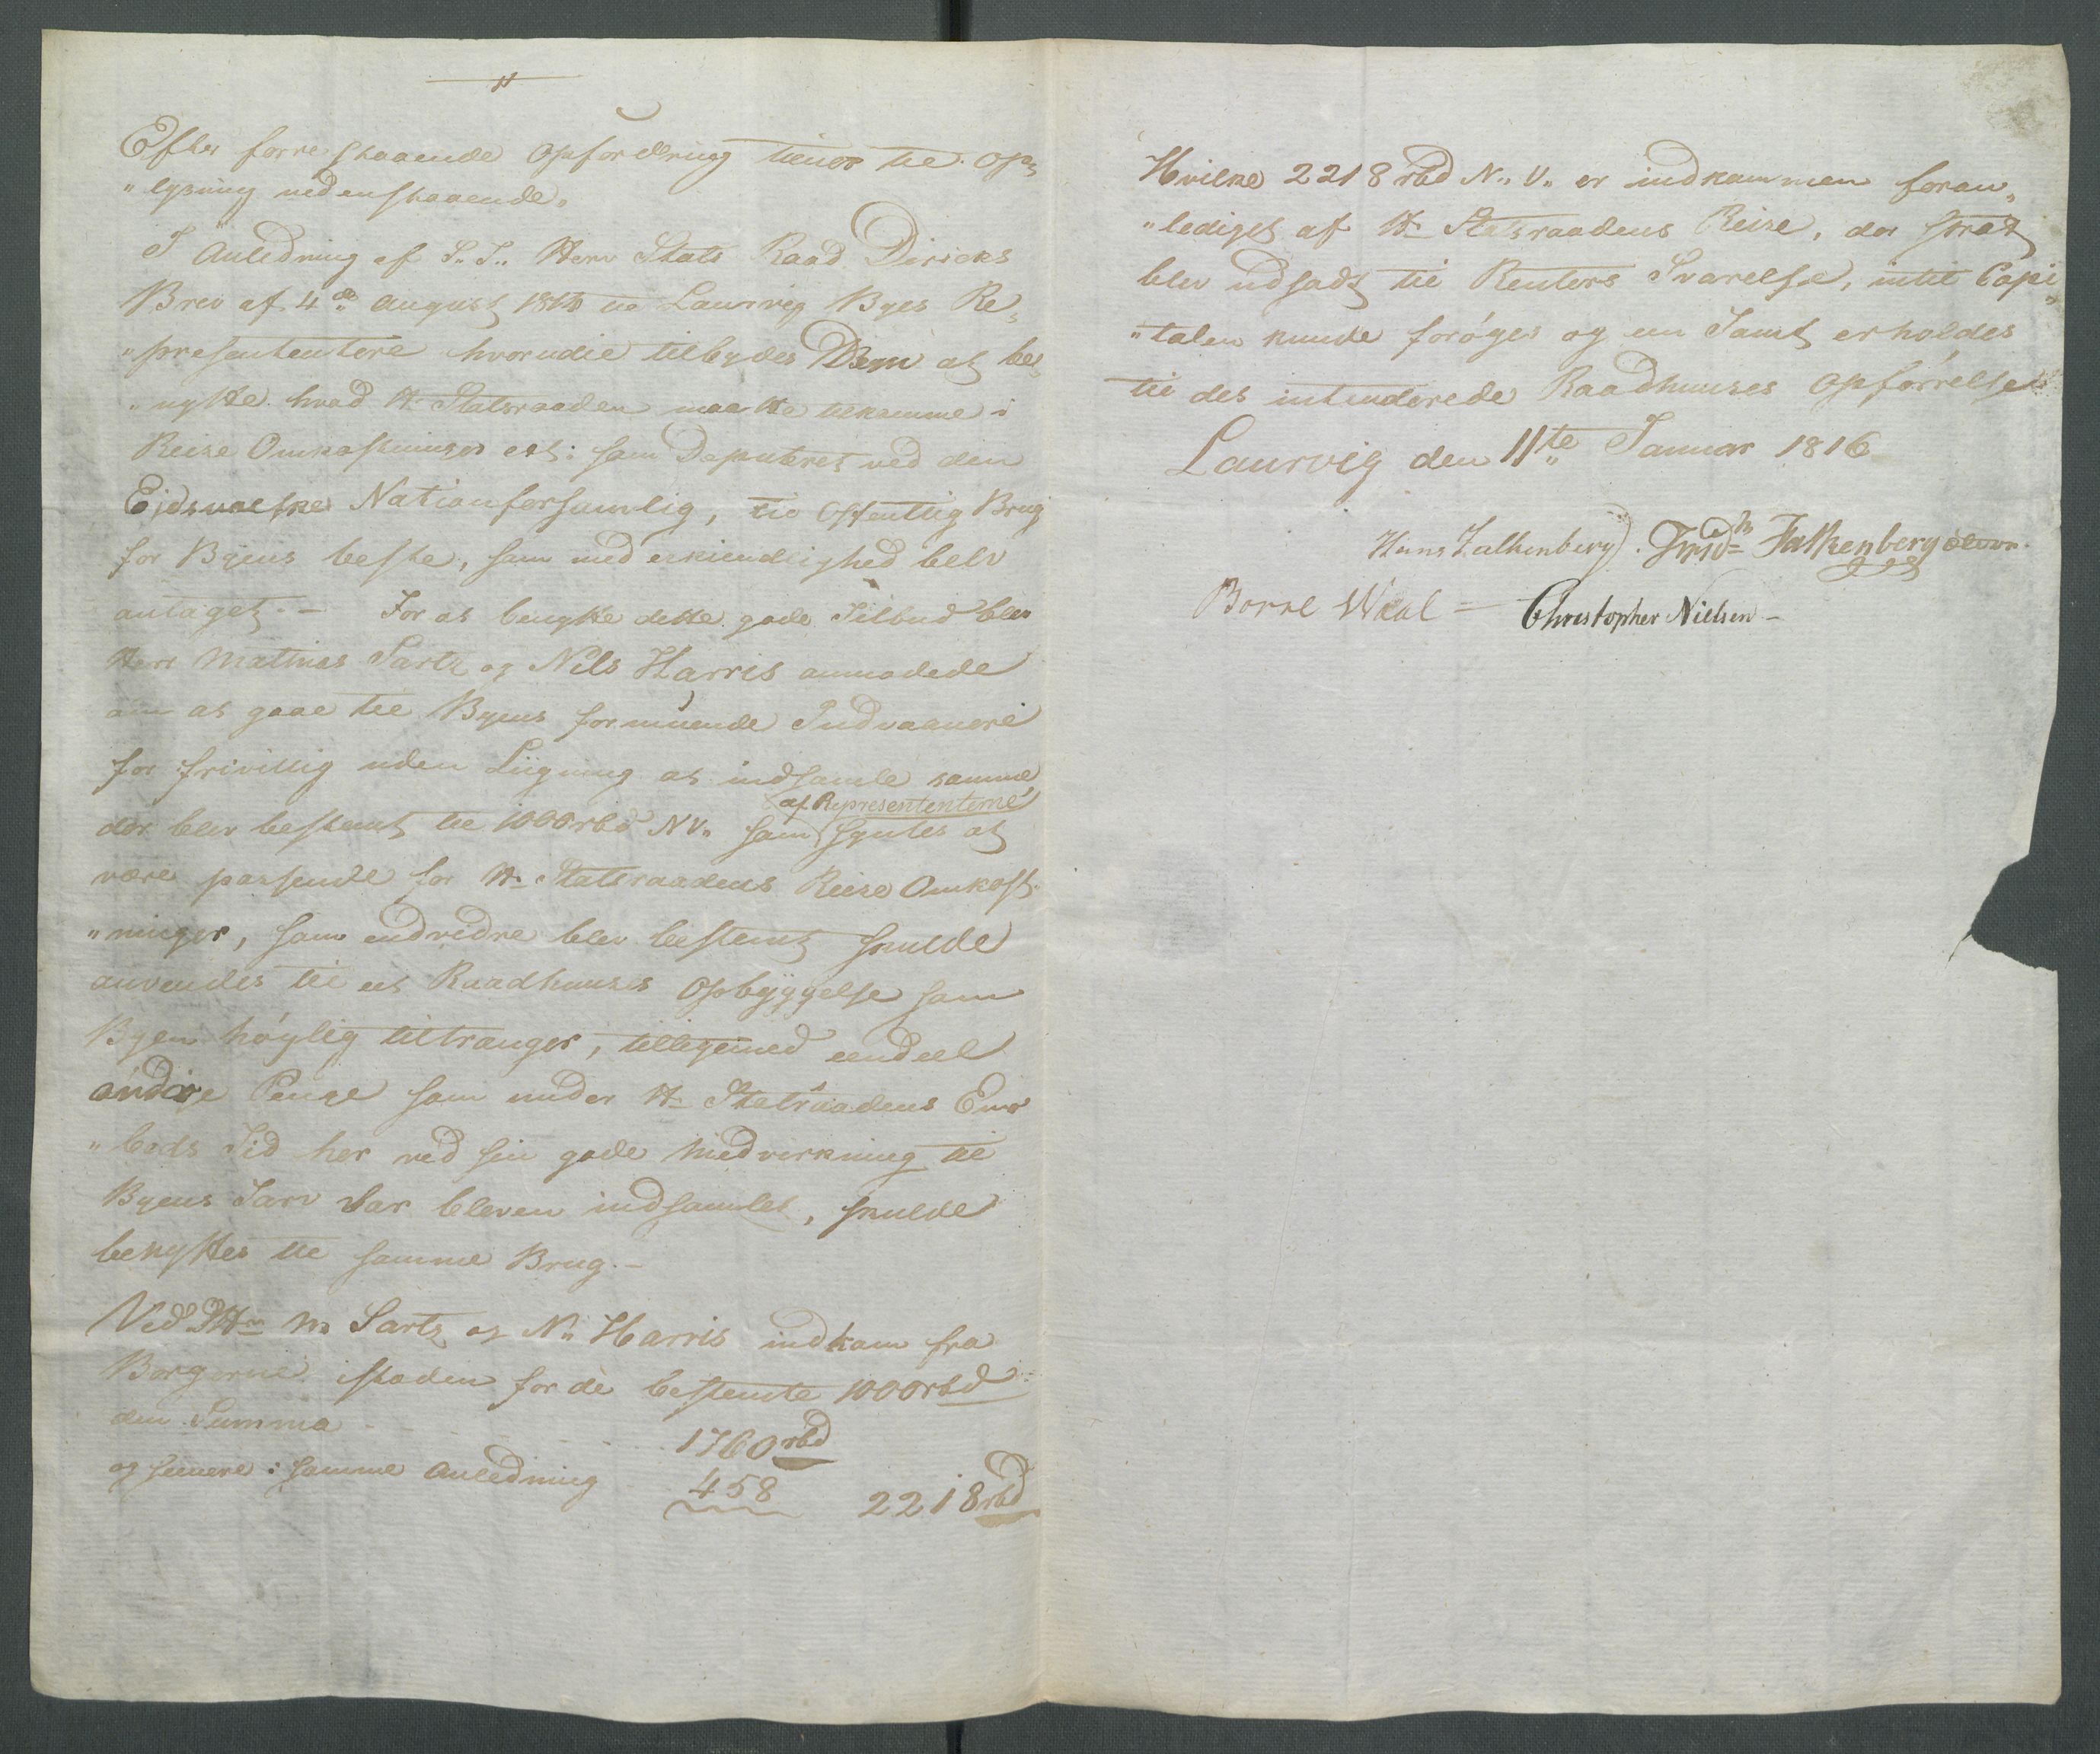 Efter forrestaaende Opfordring tiener til Op„
„lysning nedenstaaende.
I Anledning af S. T. Herr Stats Raad Diricks
Brev af 4de August 1814 til Laurvig Byes Re„
„presententere hvorudie tilbydes Dem at be„
„nytte hvad Hr Statsraaden maatte tilkomme i
Reise Omkostninger ect: som Deputeret ved den
Eidsvolske Nationforsamlig, til Offentlig Brug
for Byens beste, som med erkiendlighed belv
antaget. – For at benytte dette gode Tilbud blev
Herr Mathias Sartz og Nils Harris anmodede
om at gaae til Byens formuende Indvaanere
for frivillig uden Liigning at indsamle samme
af Represententerne
der blev bestemt til 1000 rbd NV. som syntes at
være passende for Hr Statsraadens Reise Omkost„
„ninger, som endvidre blev bestemt skulde
anvendes til et Raadhuuses Opbyggelse som
Byen høylig tiltrænger, tilligemed eendeel
andre Penge som under Hr Statsraadens Em„
„beds Tid her ved sin gode Medvirkning til
Byens Tarv var bleven indsamlet, skulde
benyttes til samme Brug. –
Ved Hr M. Sartz og N. Harris indkom fra
Borgerne istæden for de bestemte 1000 rbd
den Summa 1760 rbd
og senere i samme Anledning 458 2218 rbd
Hvilke 2218 rbd N. V. er indkommen foran„
„lediget af Hr Statsraadens Reise, der strax
blev udsadt til Renters Svarelse, intil Capi„
„talen kunde forøges og een Tomt erholdes
til det intenderede Raadhuuses Opførrelse
Laurvig den 11te Januar 1816
Hans Falkenberg. Fridr Falkenberg
Borre Waal – Christopher Nielsen –